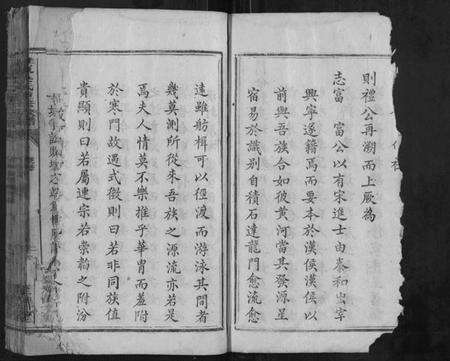 則禮公再溯而上厥為
志富 富公以有宋進士由泰和出宰
興寧遂籍焉而要本於漢侯漢侯以
前與吾族合如彼黃河當其發源星
宿易於識別自積石達龍門愈流愈
遠雖舫楫可以徑渡而游泳其間者
幾莫測所從來吾族之源流亦若是
焉夫人情莫不樂推乎華胄而羞附
於寒門故過式微則曰若非同族值
貴顯則曰若屬連宗若崇韜之附汾